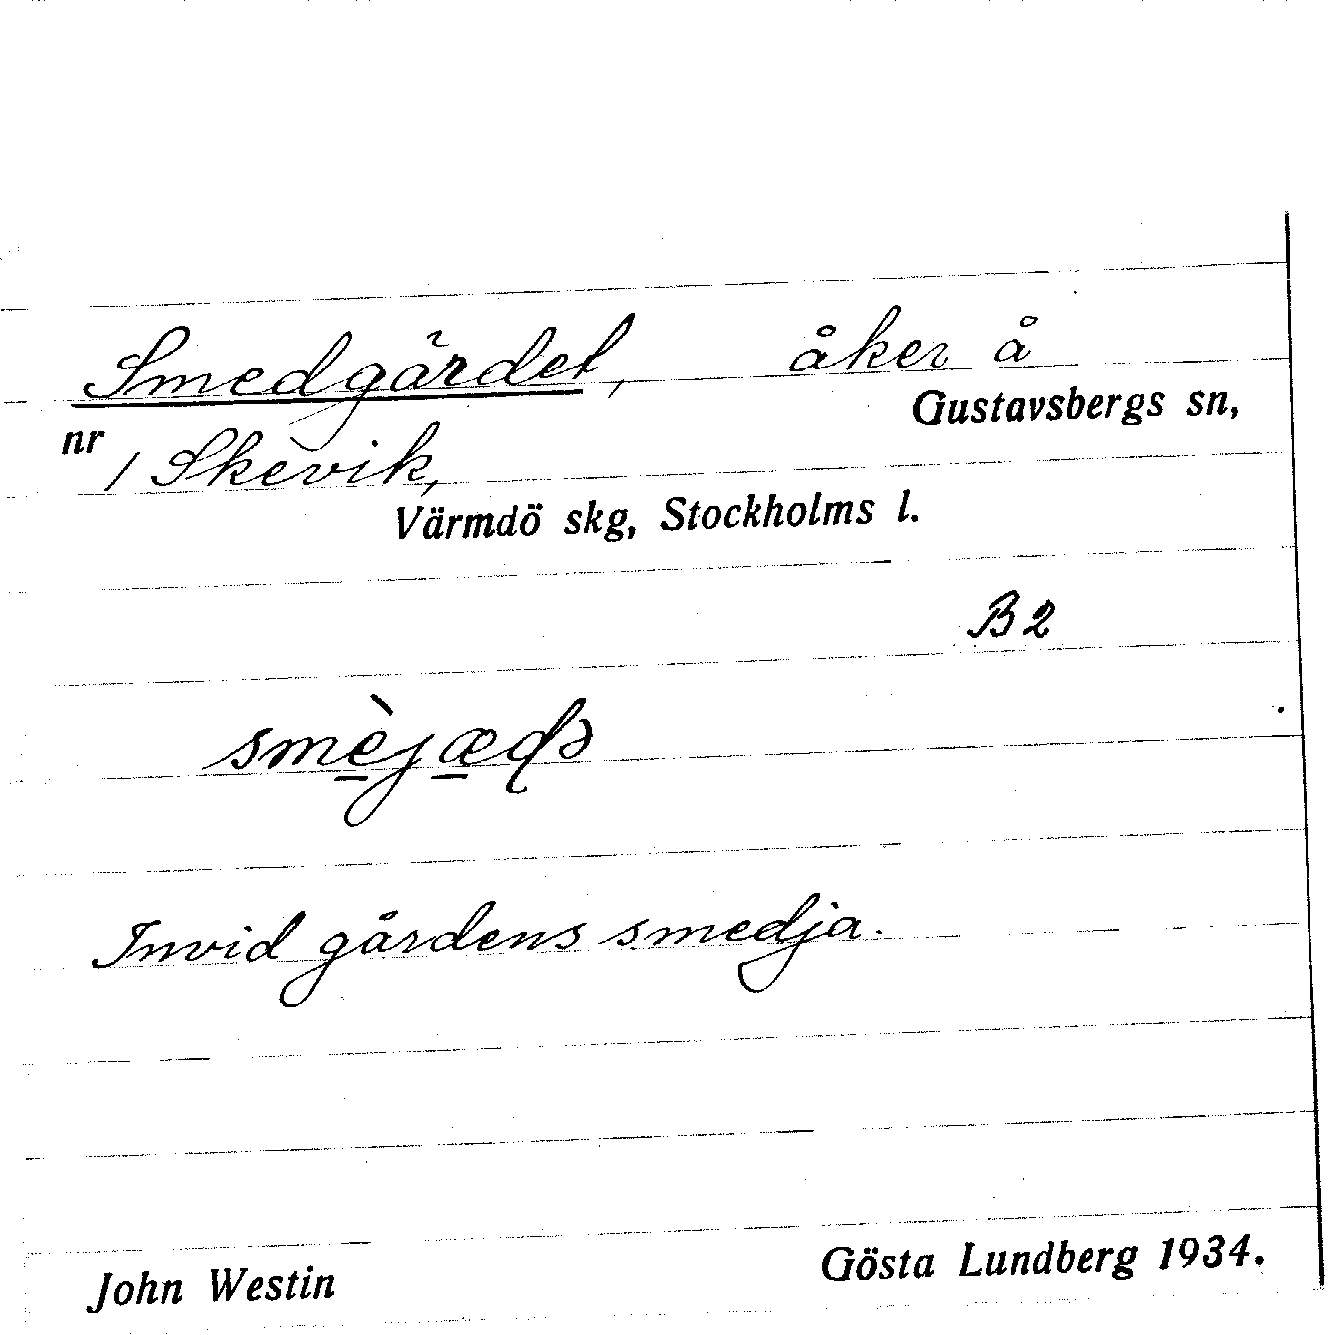 Smedgärdet, åker å
Gustavsbergs sn,
nr 1 Skevik,
Värmdö skg, Stockholms l.
B 2
smèjæɖə
Invid gårdens smedja.
John Westin Gösta Lundberg 1934.